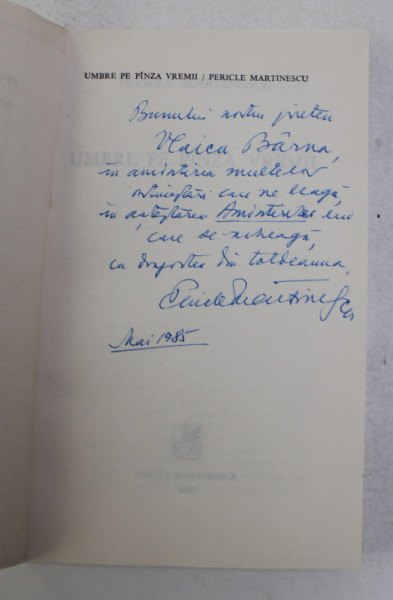 UMBRE PE PÎNZA VREMII / PERICLE MARTINESCU
Bunului nostru prieten
Vlaicu Bârna,
în amintirea multelor
care ne leagă,
în așteptarea Amintirilor lui
care se încheagă,
cu dragostea din totdeauna,
Pericle Martinescu
Mai 1985
UMBRE PE PÎNZA VREMII